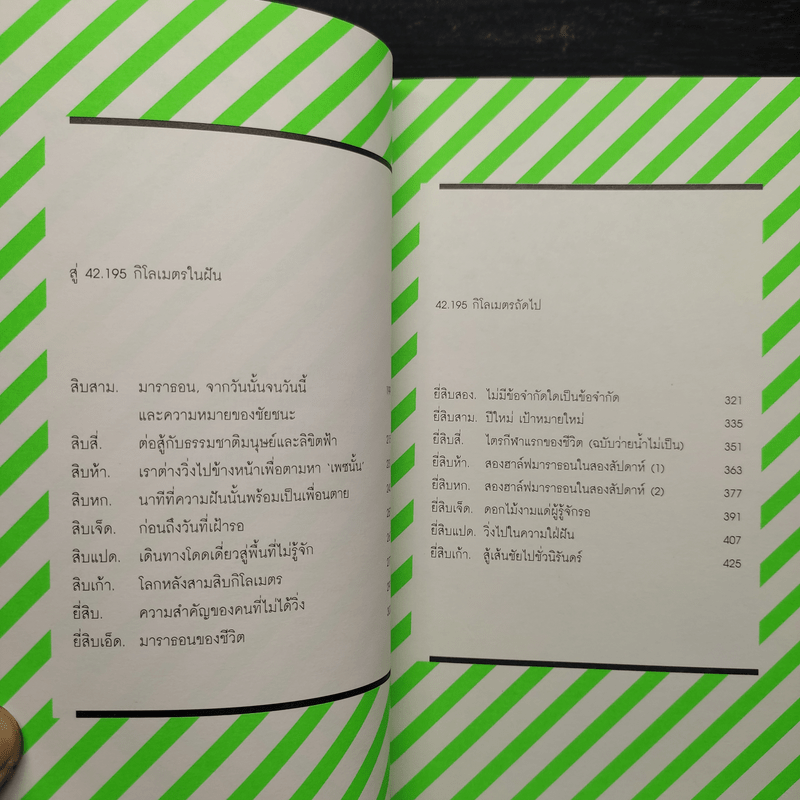 สู่ 42.195 กิโลเมตรในฝัน
สิบสาม. มาราธอน, จากวันนั้นจนวันนี้
และความหมายของชัยชนะ
สิบสี่. ต่อสู้กับธรรมชาติมนุษย์และลิขิตฟ้า
สิบห้า. เราต่างวิ่งไปข้างหน้าเพื่อตามหา 'เพซนั้น'
สิบหก. นาทีที่ความฝันนั้นพร้อมเป็นเพื่อนตาย
สิบเจ็ด. ก่อนถึงวันที่เฝ้ารอ
สิบแปด. เดินทางโดดเดี่ยวสู่พื้นที่ไม่รู้จัก
สิบเก้า. โลกหลังสามสิบกิโลเมตร
ยี่สิบ. ความสำคัญของคนที่ไม่ได้วิ่ง
ยี่สิบเอ็ด. มาราธอนของชีวิต
42.195 กิโลเมตรถัดไป
ยี่สิบสอง. ไม่มีข้อจำกัดใดเป็นข้อจำกัด 321
ยี่สิบสาม. ปีใหม่ เป้าหมายใหม่ 335
ยี่สิบสี่. ไตรกีฬาแรกของชีวิต (ฉบับว่ายน้ำไม่เป็น) 351
ยี่สิบห้า. สองฮาล์ฟมาราธอนในสองสัปดาห์ (1) 363
ยี่สิบหก. สองฮาล์ฟมาราธอนในสองสัปดาห์ (2) 377
ยี่สิบเจ็ด. ดอกไม้งามแด่ผู้รู้จักรอ 391
ยี่สิบแปด. วิ่งไปในความใฝ่ฝัน 407
ยี่สิบเก้า. สู้เส้นชัยไปชั่วนิรันดร์ 425